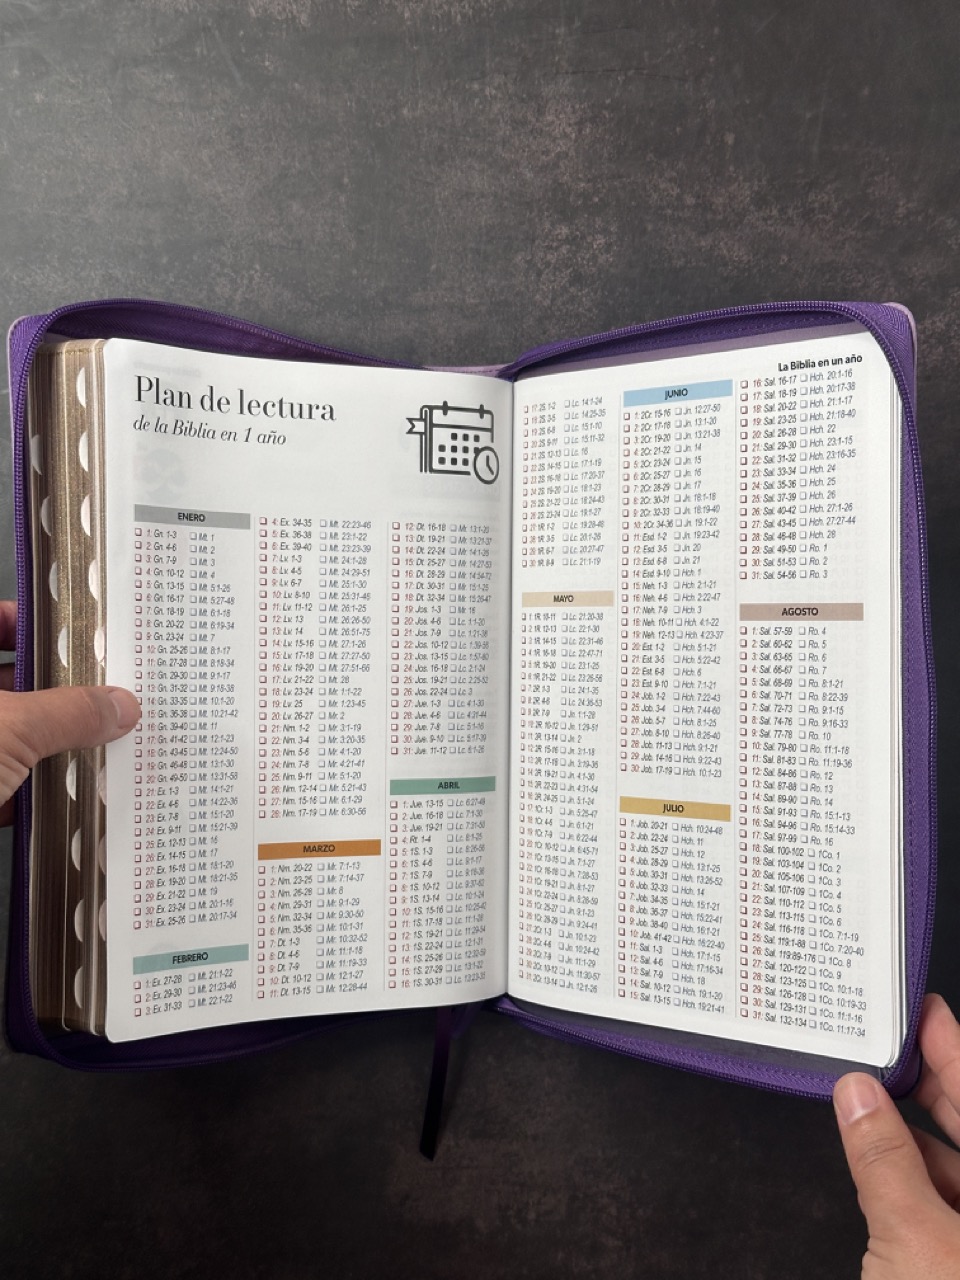 Plan de lectura
de la Biblia en 1 año
ENERO
❏ 1: Gn. 1-3 ❏ Mt. 1
❏ 2: Gn. 4-6 ❏ Mt. 2
❏ 3: Gn. 7-9 ❏ Mt. 3
❏ 4: Gn. 10-12 ❏ Mt. 4
❏ 5: Gn. 13-15 ❏ Mt. 5:1-26
❏ 6: Gn. 16-17 ❏ Mt. 5:27-48
❏ 7: Gn. 18-19 ❏ Mt. 6:1-18
❏ 8: Gn. 20-22 ❏ Mt. 6:19-34
❏ 9: Gn. 23-24 ❏ Mt. 7
❏ 10: Gn. 25-26 ❏ Mt. 8:1-17
❏ 11: Gn. 27-28 ❏ Mt. 8:18-34
❏ 12: Gn. 29-30 ❏ Mt. 9:1-17
❏ 13: Gn. 31-32 ❏ Mt. 9:18-38
14: Gn. 33-35 ❏ Mt. 10:1-20
❏ 15: Gn. 36-38 ❏ Mt. 10:21-42
❏ 16: Gn. 39-40 ❏ Mt. 11
❏ 17: Gn. 41-42 ❏ Mt. 12:1-23
❏ 18: Gn. 43-45 ❏ Mt. 12:24-50
❏ 19: Gn. 46-48 ❏ Mt. 13:1-30
❏ 20: Gn. 49-50 ❏ Mt. 13:31-58
❏ 21: Ex. 1-3 ❏ Mt. 14:1-21
❏ 22: Ex. 4-6 ❏ Mt. 14:22-36
❏ 23: Ex. 7-8 ❏ Mt. 15:1-20
❏ 24: Ex. 9-11 ❏ Mt. 15:21-39
❏ 25: Ex. 12-13 ❏ Mt. 16
❏ 26: Ex. 14-15 ❏ Mt. 17
❏ 27: Ex. 16-18 ❏ Mt. 18:1-20
❏ 28: Ex. 19-20 ❏ Mt. 18:21-35
❏ 29: Ex. 21-22 ❏ Mt. 19
❏ 30: Ex. 23-24 ❏ Mt. 20:1-16
❏ 31: Ex. 25-26 ❏ Mt. 20:17-34
FEBRERO
❏ 1: Ex. 27-28 ❏ Mt. 21:1-22
❏ 2: Ex. 29-30 ❏ Mt. 21:23-46
❏ 3: Ex. 31-33 ❏ Mt. 22:1-22
❏ 4: Ex. 34-35 ❏ Mt. 22:23-46
❏ 5: Ex. 36-38 ❏ Mt. 23:1-22
❏ 6: Ex. 39-40 ❏ Mt. 23:23-39
❏ 7: Lv. 1-3 ❏ Mt. 24:1-28
❏ 8: Lv. 4-5 ❏ Mt. 24:29-51
❏ 9: Lv. 6-7 ❏ Mt. 25:1-30
❏ 10: Lv. 8-10 ❏ Mt. 25:31-46
❏ 11: Lv. 11-12 ❏ Mt. 26:1-25
❏ 12: Lv. 13 ❏ Mt. 26:26-50
❏ 13: Lv. 14 ❏ Mt. 26:51-75
❏ 14: Lv. 15-16 ❏ Mt. 27:1-26
❏ 15: Lv. 17-18 ❏ Mt. 27:27-50
❏ 16: Lv. 19-20 ❏ Mt. 27:51-66
❏ 17: Lv. 21-22 ❏ Mt. 28
❏ 18: Lv. 23-24 ❏ Mr. 1:1-22
❏ 19: Lv. 25 ❏ Mr. 1:23-45
❏ 20: Lv. 26-27 ❏ Mr. 2
❏ 21: Nm. 1-2 ❏ Mr. 3:1-19
❏ 22: Nm. 3-4 ❏ Mr. 3:20-35
❏ 23: Nm. 5-6 ❏ Mr. 4:1-20
❏ 24: Nm. 7-8 ❏ Mr. 4:21-41
❏ 25: Nm. 9-11 ❏ Mr. 5:1-20
❏ 26: Nm. 12-14 ❏ Mr. 5:21-43
❏ 27: Nm. 15-16 ❏ Mr. 6:1-29
❏ 28: Nm. 17-19 ❏ Mr. 6:30-56
MARZO
❏ 1: Nm. 20-22 ❏ Mr. 7:1-13
❏ 2: Nm. 23-25 ❏ Mr. 7:14-37
❏ 3: Nm. 26-28 ❏ Mr. 8
❏ 4: Nm. 29-31 ❏ Mr. 9:1-29
❏ 5: Nm. 32-34 ❏ Mr. 9:30-50
❏ 6: Nm. 35-36 ❏ Mr. 10:1-31
❏ 7: Dt. 1-3 ❏ Mr. 10:32-52
❏ 8: Dt. 4-6 ❏ Mr. 11:1-18
❏ 9: Dt. 7-9 ❏ Mr. 11:19-33
❏ 10: Dt. 10-12 ❏ Mr. 12:1-27
❏ 11: Dt. 13-15 ❏ Mr. 12:28-44
❏ 12: Dt. 16-18 ❏ Mr. 13:1-20
❏ 13: Dt. 19-21 ❏ Mr. 13:21-37
❏ 14: Dt. 22-24 ❏ Mr. 14:1-26
❏ 15: Dt. 25-27 ❏ Mr. 14:27-53
❏ 16: Dt. 28-29 ❏ Mr. 14:54-72
❏ 17: Dt. 30-31 ❏ Mr. 15:1-25
❏ 18: Dt. 32-34 ❏ Mr. 15:26-47
❏ 19: Jos. 1-3 ❏ Mr. 16
❏ 20: Jos. 4-6 ❏ Lc. 1:1-20
❏ 21: Jos. 7-9 ❏ Lc. 1:21-38
❏ 22: Jos. 10-12 ❏ Lc. 1:39-56
❏ 23: Jos. 13-15 ❏ Lc. 1:57-80
❏ 24: Jos. 16-18 ❏ Lc. 2:1-24
❏ 25: Jos. 19-21 ❏ Lc. 2:25-52
❏ 26: Jos. 22-24 ❏ Lc. 3
❏ 27: Jue. 1-3 ❏ Lc. 4:1-30
❏ 28: Jue. 4-6 ❏ Lc. 4:31-44
❏ 29: Jue. 7-8 ❏ Lc. 5:1-16
❏ 30: Jue. 9-10 ❏ Lc. 5:17-39
❏ 31: Jue. 11-12 ❏ Lc. 6:1-26
ABRIL
❏ 1: Jue. 13-15 ❏ Lc. 6:27-49
❏ 2: Jue. 16-18 ❏ Lc. 7:1-30
❏ 3: Jue. 19-21 ❏ Lc. 7:31-50
❏ 4: Rt. 1-4 ❏ Lc. 8:1-25
❏ 5: 1S. 1-3 ❏ Lc. 8:26-56
❏ 6: 1S. 4-6 ❏ Lc. 9:1-17
❏ 7: 1S. 7-9 ❏ Lc. 9:18-36
❏ 8: 1S. 10-12 ❏ Lc. 9:37-62
❏ 9: 1S. 13-14 ❏ Lc. 10:1-24
❏ 10: 1S. 15-16 ❏ Lc. 10:25-42
❏ 11: 1S. 17-18 ❏ Lc. 11:1-28
❏ 12: 1S. 19-21 ❏ Lc. 11:29-54
❏ 13: 1S. 22-24 ❏ Lc. 12:1-31
❏ 14: 1S. 25-26 ❏ Lc. 12:32-59
❏ 15: 1S. 27-29 ❏ Lc. 13:1-22
❏ 16: 1S. 30-31 ❏ Lc. 13:23-35
La Biblia en un año
❏ 17: 2S. 1-2 ❏ Lc. 14:1-24
❏ 18: 2S. 3-5 ❏ Lc. 14:25-35
❏ 19: 2S. 6-8 ❏ Lc. 15:1-10
❏ 20: 2S. 9-11 ❏ Lc. 15:11-32
❏ 21: 2S. 12-13 ❏ Lc. 16
❏ 22: 2S. 14-15 ❏ Lc. 17:1-19
❏ 23: 2S. 16-18 ❏ Lc. 17:20-37
❏ 24: 2S. 19-20 ❏ Lc. 18:1-23
❏ 25: 2S. 21-22 ❏ Lc. 18:24-43
❏ 26: 2S. 23-24 ❏ Lc. 19:1-27
❏ 27: 1R. 1-2 ❏ Lc. 19:28-48
❏ 28: 1R. 3-5 ❏ Lc. 20:1-26
❏ 29: 1R. 6-7 ❏ Lc. 20:27-47
❏ 30: 1R. 8-9 ❏ Lc. 21:1-19
MAYO
❏ 1: 1R. 10-11 ❏ Lc. 21:20-38
❏ 2: 1R. 12-13 ❏ Lc. 22:1-30
❏ 3: 1R. 14-15 ❏ Lc. 22:31-46
❏ 4: 1R. 16-18 ❏ Lc. 22:47-71
❏ 5: 1R. 19-20 ❏ Lc. 23:1-25
❏ 6: 1R. 21-22 ❏ Lc. 23:26-56
❏ 7: 2R. 1-3 ❏ Lc. 24:1-35
❏ 8: 2R. 4-6 ❏ Lc. 24:36-53
❏ 9: 2R. 7-9 ❏ Jn. 1:1-28
❏ 10: 2R. 10-12 ❏ Jn. 1:29-51
❏ 11: 2R. 13-14 ❏ Jn. 2
❏ 12: 2R. 15-16 ❏ Jn. 3:1-18
❏ 13: 2R. 17-18 ❏ Jn. 3:19-36
❏ 14: 2R. 19-21 ❏ Jn. 4:1-30
❏ 15: 2R. 22-23 ❏ Jn. 4:31-54
❏ 16: 2R. 24-25 ❏ Jn. 5:1-24
❏ 17: 1Cr. 1-3 ❏ Jn. 5:25-47
❏ 18: 1Cr. 4-6 ❏ Jn. 6:1-21
❏ 19: 1Cr. 7-9 ❏ Jn. 6:22-44
❏ 20: 1Cr. 10-12 ❏ Jn. 6:45-71
❏ 21: 1Cr. 13-15 ❏ Jn. 7:1-27
❏ 22: 1Cr. 16-18 ❏ Jn. 7:28-53
❏ 23: 1Cr. 19-21 ❏ Jn. 8:1-27
❏ 24: 1Cr. 22-24 ❏ Jn. 8:28-59
❏ 25: 1Cr. 25-27 ❏ Jn. 9:1-23
❏ 26: 1Cr. 28-29 ❏ Jn. 9:24-41
❏ 27: 2Cr. 1-3 ❏ Jn. 10:1-23
❏ 28: 2Cr. 4-6 ❏ Jn. 10:24-42
❏ 29: 2Cr. 7-9 ❏ Jn. 11:1-29
❏ 30: 2Cr. 10-12 ❏ Jn. 11:30-57
❏ 31: 2Cr. 13-14 ❏ Jn. 12:1-26
JUNIO
❏ 1: 2Cr. 15-16 ❏ Jn. 12:27-50
❏ 2: 2Cr. 17-18 ❏ Jn. 13:1-20
❏ 3: 2Cr. 19-20 ❏ Jn. 13:21-38
❏ 4: 2Cr. 21-22 ❏ Jn. 14
❏ 5: 2Cr. 23-24 ❏ Jn. 15
❏ 6: 2Cr. 25-27 ❏ Jn. 16
❏ 7: 2Cr. 28-29 ❏ Jn. 17
❏ 8: 2Cr. 30-31 ❏ Jn. 18:1-18
❏ 9: 2Cr. 32-33 ❏ Jn. 18:19-40
❏ 10: 2Cr. 34-36 ❏ Jn. 19:1-22
❏ 11: Esd. 1-2 ❏ Jn. 19:23-42
❏ 12: Esd. 3-5 ❏ Jn. 20
❏ 13: Esd. 6-8 ❏ Jn. 21
❏ 14: Esd. 9-10 ❏ Hch. 1
❏ 15: Neh. 1-3 ❏ Hch. 2:1-21
❏ 16: Neh. 4-6 ❏ Hch. 2:22-47
❏ 17: Neh. 7-9 ❏ Hch. 3
❏ 18: Neh. 10-11 ❏ Hch. 4:1-22
❏ 19: Neh. 12-13 ❏ Hch. 4:23-37
❏ 20: Est. 1-2 ❏ Hch. 5:1-21
❏ 21: Est. 3-5 ❏ Hch. 5:22-42
❏ 22: Est. 6-8 ❏ Hch. 6
❏ 23: Est. 9-10 ❏ Hch. 7:1-21
❏ 24: Job. 1-2 ❏ Hch. 7:22-43
❏ 25: Job. 3-4 ❏ Hch. 7:44-60
❏ 26: Job. 5-7 ❏ Hch. 8:1-25
❏ 27: Job. 8-10 ❏ Hch. 8:26-40
❏ 28: Job. 11-13 ❏ Hch. 9:1-21
❏ 29: Job. 14-16 ❏ Hch. 9:22-43
❏ 30: Job. 17-19 ❏ Hch. 10:1-23
JULIO
❏ 1: Job. 20-21 ❏ Hch. 10:24-48
❏ 2: Job. 22-24 ❏ Hch. 11
❏ 3: Job. 25-27 ❏ Hch. 12
❏ 4: Job. 28-29 ❏ Hch. 13:1-25
❏ 5: Job. 30-31 ❏ Hch. 13:26-52
❏ 6: Job. 32-33 ❏ Hch. 14
❏ 7: Job. 34-35 ❏ Hch. 15:1-21
❏ 8: Job. 36-37 ❏ Hch. 15:22-41
❏ 9: Job. 38-40 ❏ Hch. 16:1-21
❏ 10: Job. 41-42 ❏ Hch. 16:22-40
❏ 11: Sal. 1-3 ❏ Hch. 17:1-15
❏ 12: Sal. 4-6 ❏ Hch. 17:16-34
❏ 13: Sal. 7-9 ❏ Hch. 18
❏ 14: Sal. 10-12 ❏ Hch. 19:1-20
❏ 15: Sal. 13-15 ❏ Hch. 19:21-41
❏ 16: Sal. 16-17 ❏ Hch. 20:1-16
❏ 17: Sal. 18-19 ❏ Hch. 20:17-38
❏ 18: Sal. 20-22 ❏ Hch. 21:1-17
❏ 19: Sal. 23-25 ❏ Hch. 21:18-40
❏ 20: Sal. 26-28 ❏ Hch. 22
❏ 21: Sal. 29-30 ❏ Hch. 23:1-15
❏ 22: Sal. 31-32 ❏ Hch. 23:16-35
❏ 23: Sal. 33-34 ❏ Hch. 24
❏ 24: Sal. 35-36 ❏ Hch. 25
❏ 25: Sal. 37-39 ❏ Hch. 26
❏ 26: Sal. 40-42 ❏ Hch. 27:1-26
❏ 27: Sal. 43-45 ❏ Hch. 27:27-44
❏ 28: Sal. 46-48 ❏ Hch. 28
❏ 29: Sal. 49-50 ❏ Ro. 1
❏ 30: Sal. 51-53 ❏ Ro. 2
❏ 31: Sal. 54-56 ❏ Ro. 3
AGOSTO
❏ 1: Sal. 57-59 ❏ Ro. 4
❏ 2: Sal. 60-62 ❏ Ro. 5
❏ 3: Sal. 63-65 ❏ Ro. 6
❏ 4: Sal. 66-67 ❏ Ro. 7
❏ 5: Sal. 68-69 ❏ Ro. 8:1-21
❏ 6: Sal. 70-71 ❏ Ro. 8:22-39
❏ 7: Sal. 72-73 ❏ Ro. 9:1-15
❏ 8: Sal. 74-76 ❏ Ro. 9:16-33
❏ 9: Sal. 77-78 ❏ Ro. 10
❏ 10: Sal. 79-80 ❏ Ro. 11:1-18
❏ 11: Sal. 81-83 ❏ Ro. 11:19-36
❏ 12: Sal. 84-86 ❏ Ro. 12
❏ 13: Sal. 87-88 ❏ Ro. 13
❏ 14: Sal. 89-90 ❏ Ro. 14
❏ 15: Sal. 91-93 ❏ Ro. 15:1-13
❏ 16: Sal. 94-96 ❏ Ro. 15:14-33
❏ 17: Sal. 97-99 ❏ Ro. 16
❏ 18: Sal. 100-102 ❏ 1Co. 1
❏ 19: Sal. 103-104 ❏ 1Co. 2
❏ 20: Sal. 105-106 ❏ 1Co. 3
❏ 21: Sal. 107-109 ❏ 1Co. 4
❏ 22: Sal. 110-112 ❏ 1Co. 5
❏ 23: Sal. 113-115 ❏ 1Co. 6
❏ 24: Sal. 116-118 ❏ 1Co. 7:1-19
❏ 25: Sal. 119:1-88 ❏ 1Co. 7:20-40
❏ 26: Sal. 119:89-176 ❏ 1Co. 8
❏ 27: Sal. 120-122 ❏ 1Co. 9
❏ 28: Sal. 123-125 ❏ 1Co. 10:1-18
❏ 29: Sal. 126-128 ❏ 1Co. 10:19-33
❏ 30: Sal. 129-131 ❏ 1Co. 11:1-16
❏ 31: Sal. 132-134 ❏ 1Co. 11:17-34